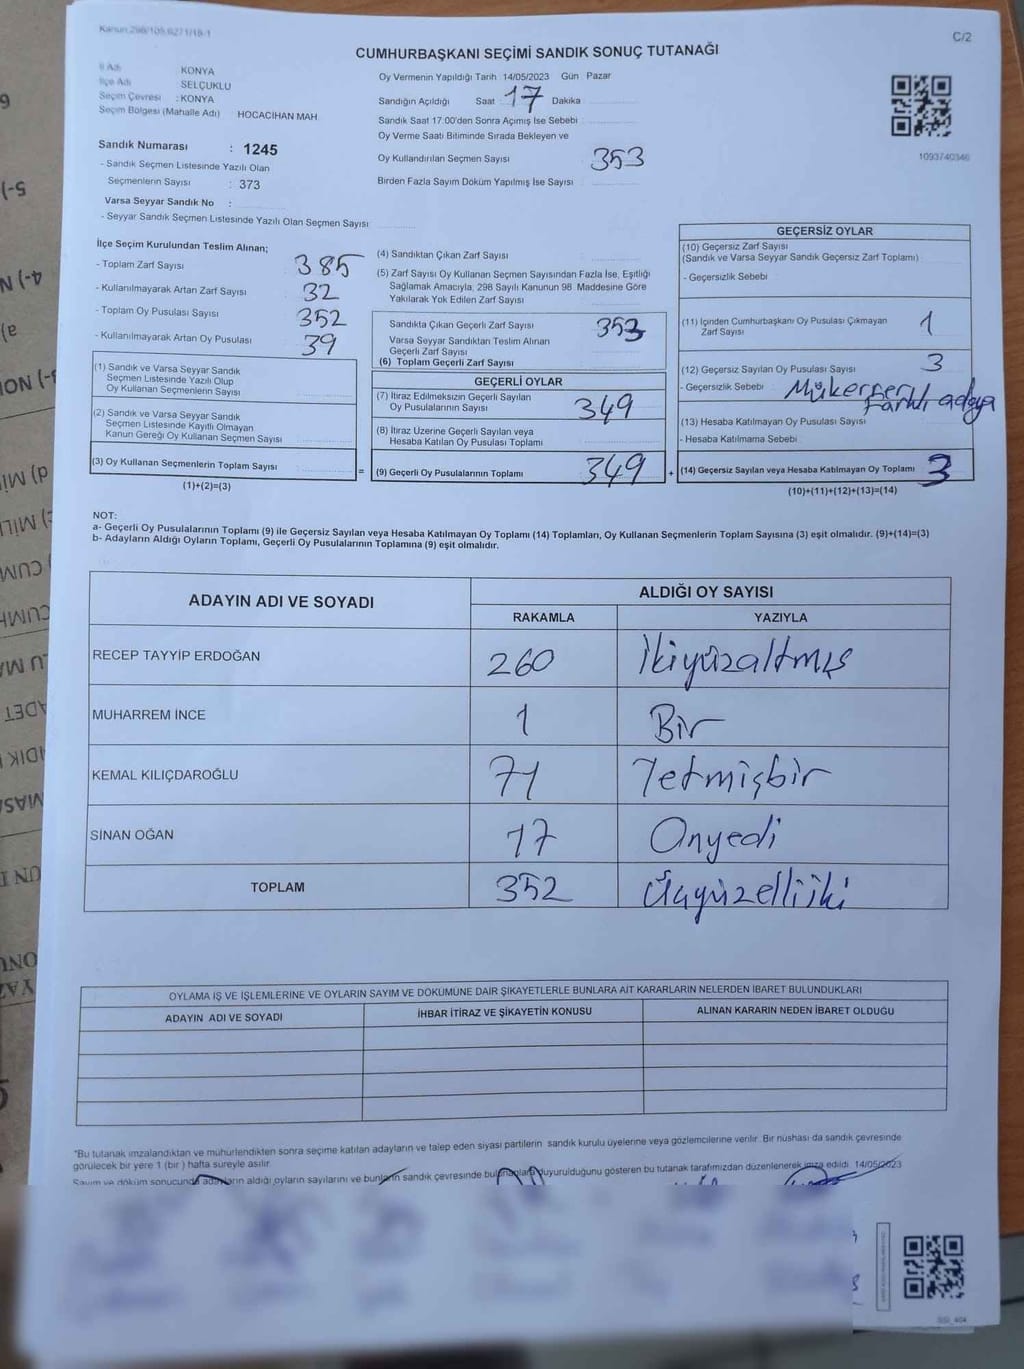 Kanun 298/105,6271/18-1
C/2
CUMHURBAŞKANI SEÇİMİ SANDIK SONUÇ TUTANAĞI
İl Adı KONYA
İlçe Adı SELÇUKLU
Seçim Çevresi : KONYA
Seçim Bölgesi (Mahalle Adı) HOCACİHAN MAH.
Oy Vermenin Yapıldığı Tarih 14/05/2023 Gün Pazar
Sandığın Açıldığı Saat : 17 Dakika
Sandık Saat 17:00'den Sonra Açımış İse Sebebi
Oy Verme Saati Bitiminde Sırada Bekleyen ve
Oy Kullandırılan Seçmen Sayısı 353
Birden Fazla Sayım Döküm Yapılmış İse Sayısı
1093740346
Sandık Numarası : 1245
- Sandık Seçmen Listesinde Yazılı Olan
Seçmenlerin Sayısı : 373
Varsa Seyyar Sandık No :
- Seyyar Sandık Seçmen Listesinde Yazılı Olan Seçmen Sayısı
İlçe Seçim Kurulundan Teslim Alınan;
- Toplam Zarf Sayısı 385
- Kullanılmayarak Artan Zarf Sayısı 32
- Toplam Oy Pusulası Sayısı 352
- Kullanılmayarak Artan Oy Pusulası 39
(1) Sandık ve Varsa Seyyar Sandık
Seçmen Listesinde Yazılı Olup
Oy Kullanan Seçmenlerin Sayısı
(2) Sandık ve Varsa Seyyar Sandık
Seçmen Listesinde Kayıtlı Olmayan
Kanun Gereği Oy Kullanan Seçmen Sayısı
(3) Oy Kullanan Seçmenlerin Toplam Sayısı
(1)+(2)=(3)
(4) Sandıktan Çıkan Zarf Sayısı
(5) Zarf Sayısı Oy Kullanan Seçmen Sayısından Fazla İse, Eşitliği
Sağlamak Amacıyla, 298 Sayılı Kanunun 98. Maddesine Göre
Yakılarak Yok Edilen Zarf Sayısı
Sandıkta Çıkan Geçerli Zarf Sayısı 353
Varsa Seyyar Sandıktan Teslim Alınan
Geçerli Zarf Sayısı
(6) Toplam Geçerli Zarf Sayısı
GEÇERLİ OYLAR
(7) İtiraz Edilmeksizin Geçerli Sayılan
Oy Pusulalarının Sayısı 349
(8) İtiraz Üzerine Geçerli Sayılan veya
Hesaba Katılan Oy Pusulası Toplamı
= (9) Geçerli Oy Pusulalarının Toplamı 349
GEÇERSİZ OYLAR
(10) Geçersiz Zarf Sayısı
(Sandık ve Varsa Seyyar Sandık Geçersiz Zarf Toplamı)
- Geçersizlik Sebebi
(11) İçinden Cumhurbaşkanı Oy Pusulası Çıkmayan
Zarf Sayısı 1
(12) Geçersiz Sayılan Oy Pusulası Sayısı 3
- Geçersizlik Sebebi Mükerrer
Farklı adaya
(13) Hesaba Katılmayan Oy Pusulası Sayısı
- Hesaba Katılmama Sebebi
+ (14) Geçersiz Sayılan veya Hesaba Katılmayan Oy Toplamı 3
(10)+(11)+(12)+(13)=(14)
NOT:
a- Geçerli Oy Pusulalarının Toplamı (9) ile Geçersiz Sayılan veya Hesaba Katılmayan Oy Toplamı (14) Toplamları, Oy Kullanan Seçmenlerin Toplam Sayısına (3) eşit olmalıdır. (9)+(14)=(3)
b- Adayların Aldığı Oyların Toplamı, Geçerli Oy Pusulalarının Toplamına (9) eşit olmalıdır.
ADAYIN ADI VE SOYADI
ALDIĞI OY SAYISI
RAKAMLA YAZIYLA
RECEP TAYYİP ERDOĞAN 260 İkiyüzaltmış
MUHARREM İNCE 1 Bir
KEMAL KILIÇDAROĞLU 71 Yetmişbir
SİNAN OĞAN 17 Onyedi
TOPLAM 352 Üçyüzelliiki
OYLAMA İŞ VE İŞLEMLERİNE VE OYLARIN SAYIM VE DÖKÜMÜNE DAİR ŞİKAYETLERLE BUNLARA AİT KARARLARIN NELERDEN İBARET BULUNDUKLARI
ADAYIN ADI VE SOYADI İHBAR İTİRAZ VE ŞİKAYETİN KONUSU ALINAN KARARIN NEDEN İBARET OLDUĞU
*Bu tutanak imzalandıktan ve mühürlendikten sonra seçime katılan adayların ve talep eden siyasi partilerin sandık kurulu üyelerine veya gözlemcilerine verilir. Bir nüshası da sandık çevresinde
görülecek bir yere 1 (bir) hafta süreyle asılır.
Sayım ve döküm sonucunda adayların aldığı oyların sayılarını ve bunların sandık çevresinde bulunanlara duyurulduğunu gösteren bu tutanak tarafımızdan düzenlenerek imza edildi. 14/05/2023